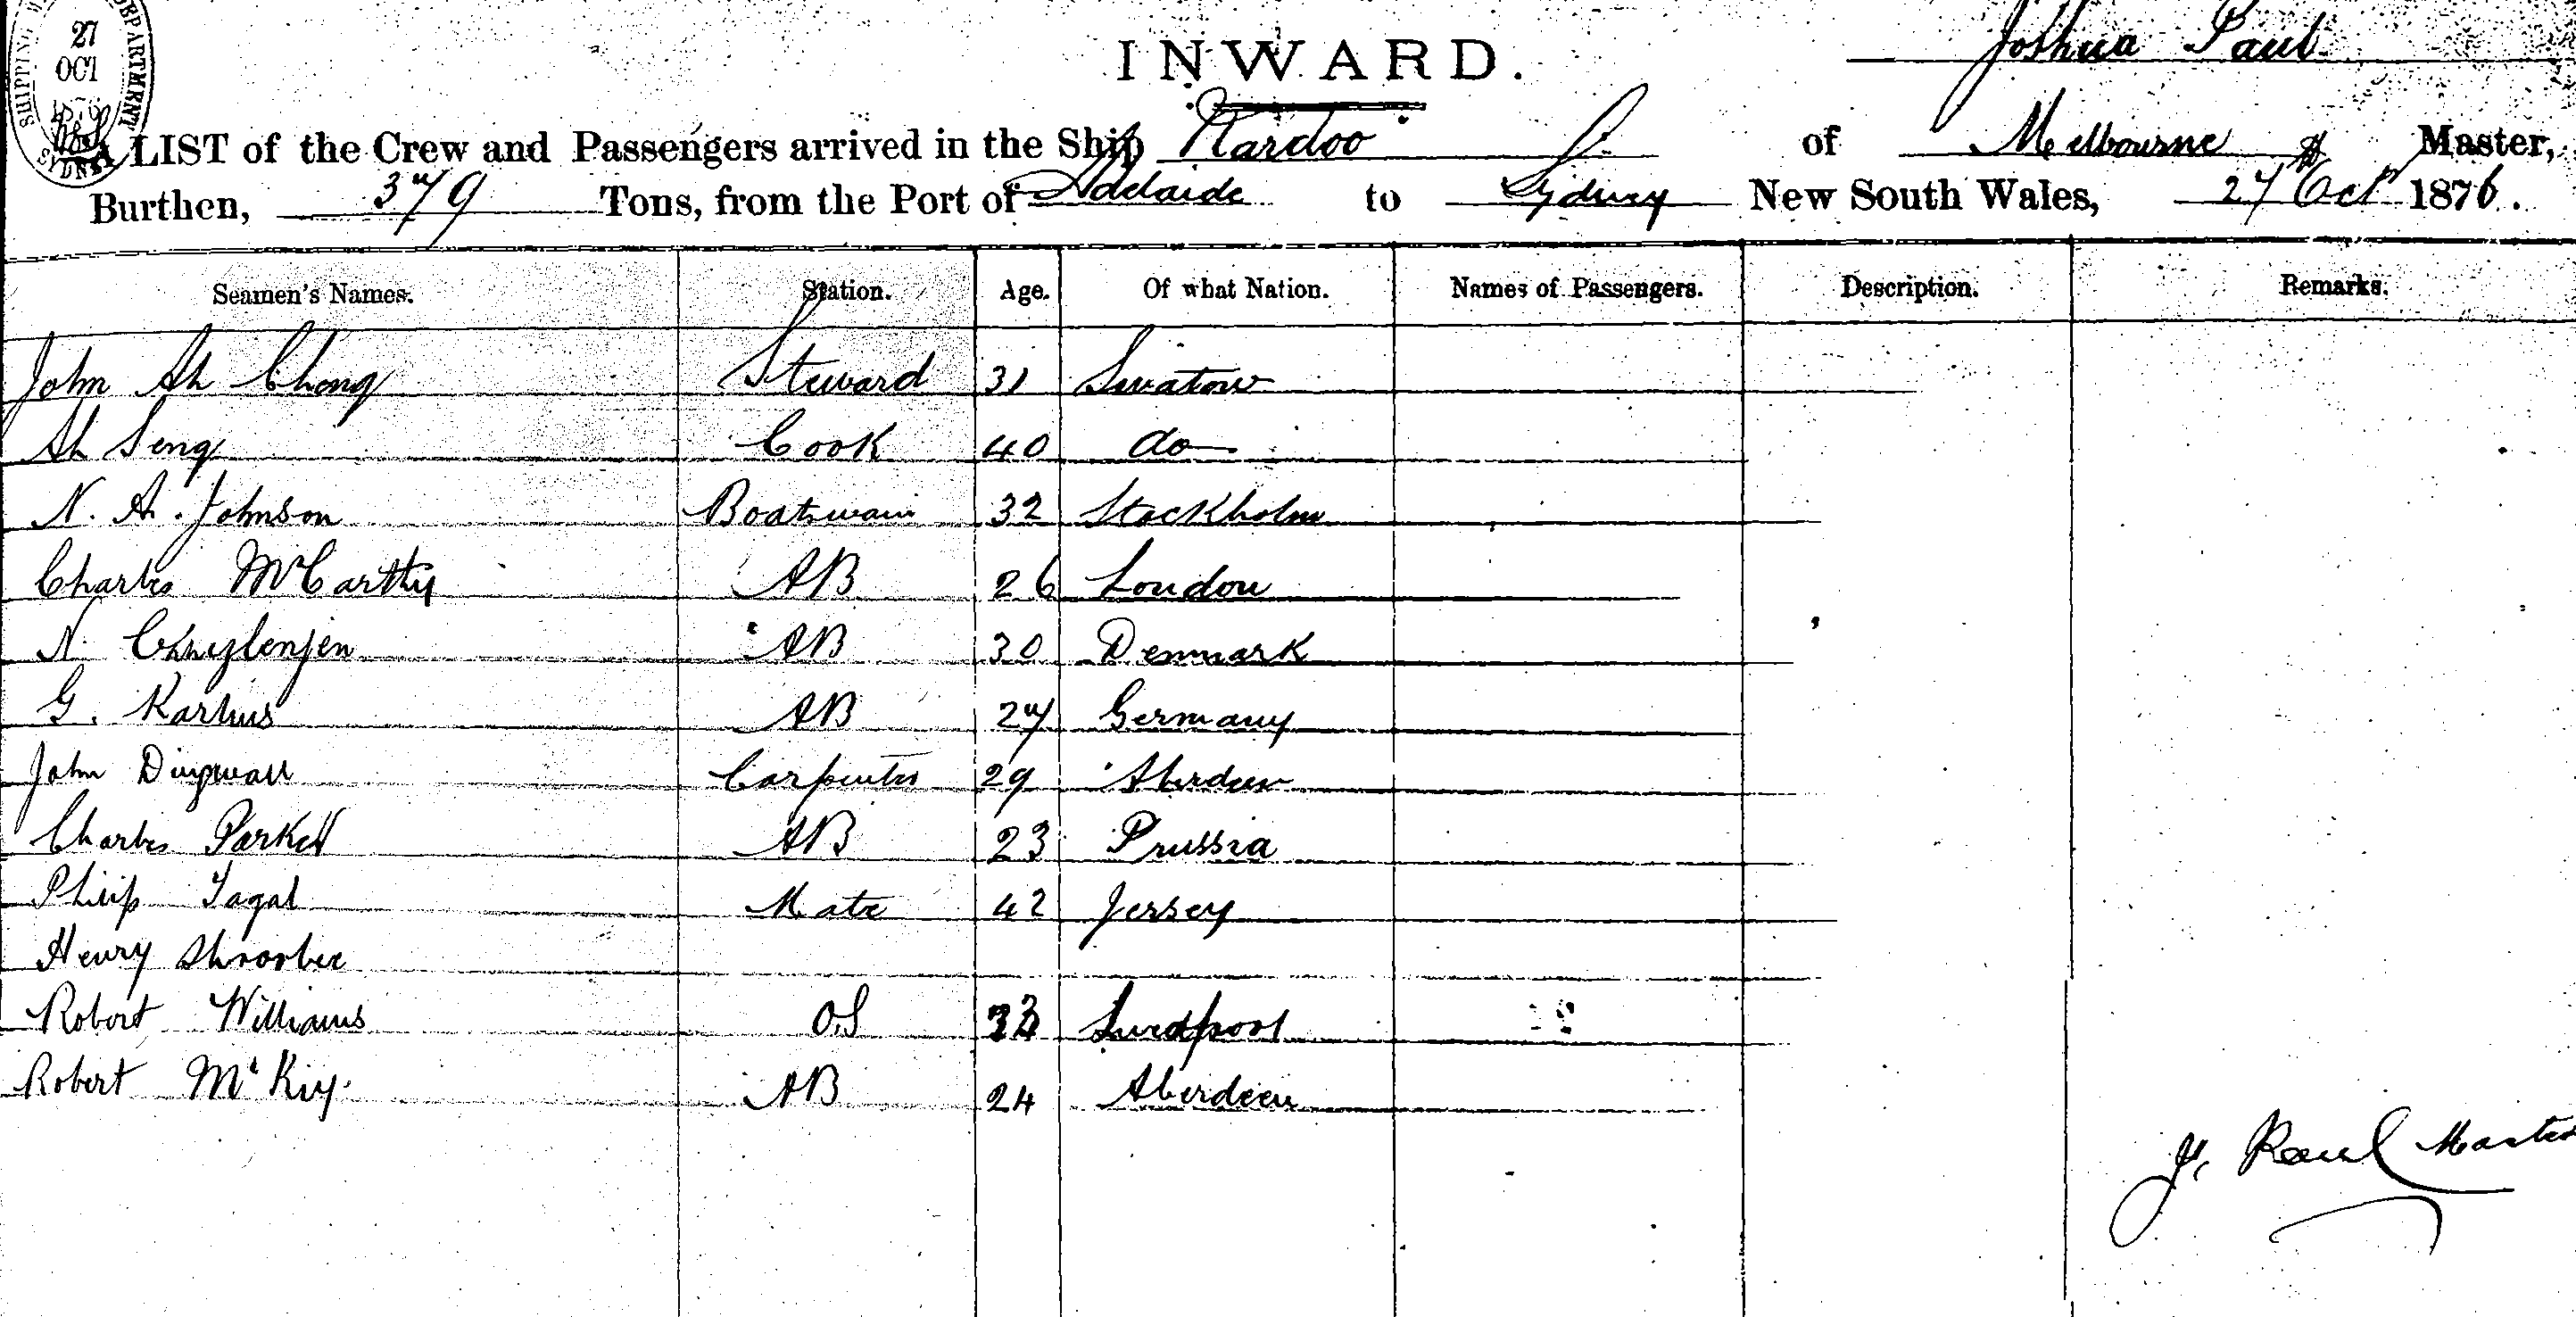 27
OCT
1876
SHIPPING DEPARTMENT
SYDNEY
INWARD.
Joshua Paul
A LIST of the Crew and Passengers arrived in the Ship Nardoo of Melbourne Master,
Burthen, 379 Tons, from the Port of Adelaide to Sydney New South Wales, 27th Oct 1876.
Seamen's Names. Station. Age. Of what Nation. Names of Passengers. Description. Remarks.
John Ah Chong Steward 31 Swatow
Ah Seng Cook 40 do
N. A. Johnson Boatswain 32 Stockholm
Charles McCarthy AB 26 London
N. AB 30 Denmark
G. Karlus AB 27 Germany
John Dingwall Carpenter 29 Aberdeen
Charles AB 23 Prussia
Philip Mate 42 Jersey
Henry
Robert Williams O.S Liverpool
Robert McKiy. AB 24 Aberdeen
J. Paul Master